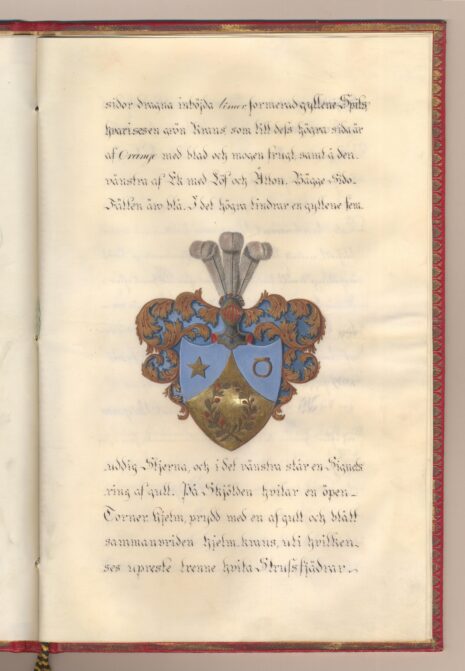 sidor dragna inböjda linier formerad gyllene Spits
hvari ses en grön Krans som till dess högra sida är
af Orange med blad och mogen frugt, samt å den
vänstra af Ek med Löf och Ållon. Bägge Sido-
Fälten äro blå. I det högra tindrar en gyllene fem-
uddig Stjerna, och i det vänstra står en Signets
ring af gull. På Skjölden hvilar en öpen
Torner hjelm, prydd med en af gull och blått
sammanvriden hjelm-krans, uti hvilken-
ses upreste trenne hvita Strussfjädrar